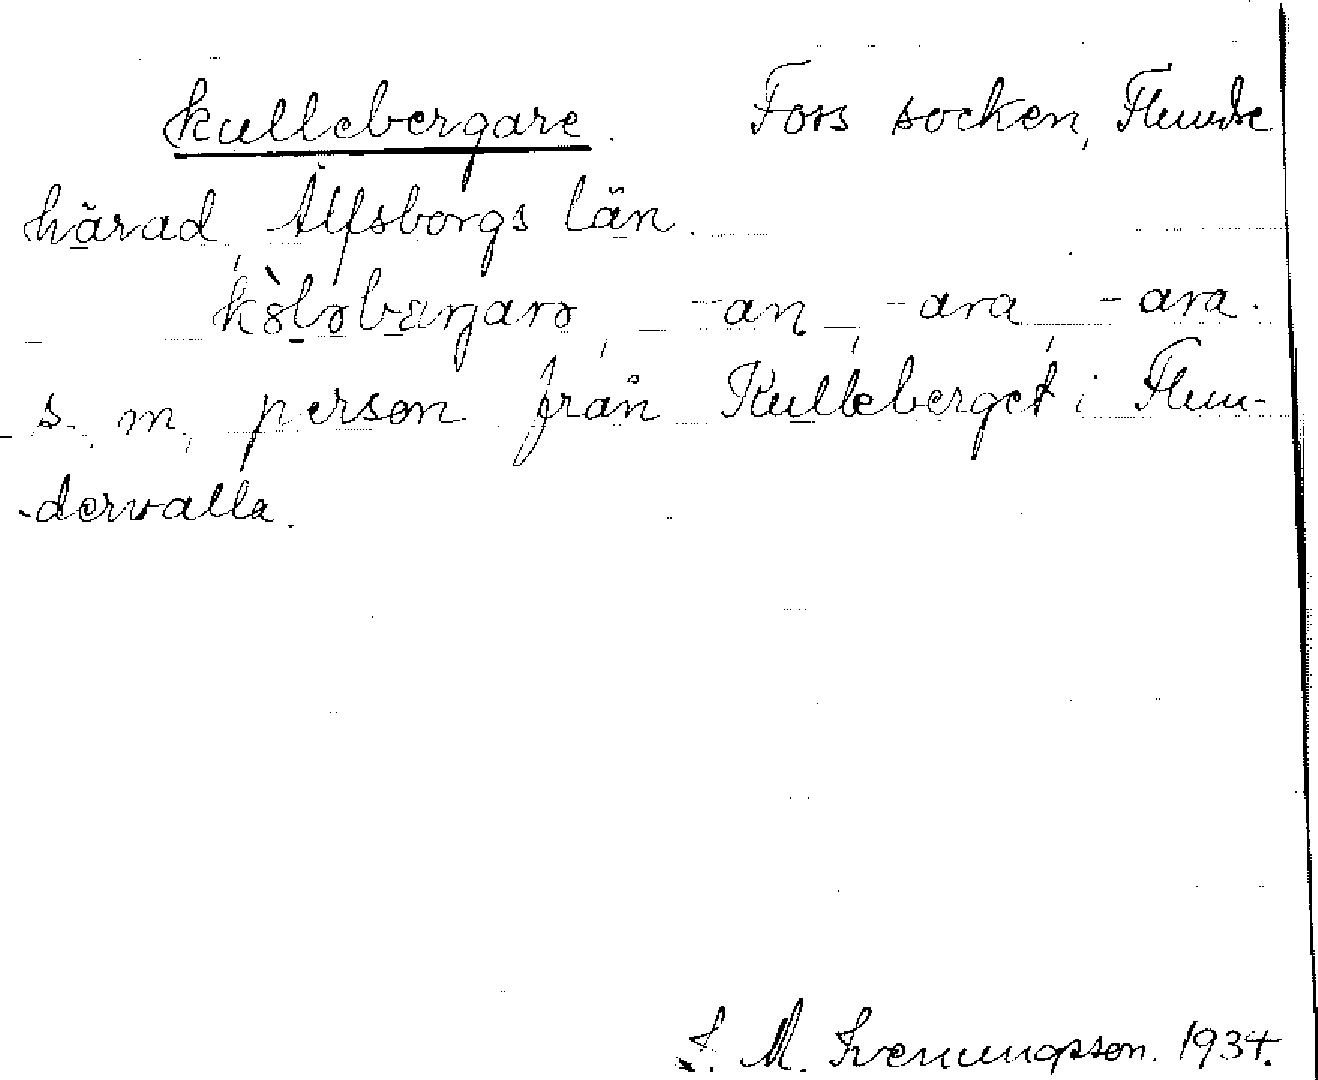 kullebergare. Fors socken, Flundre
härad, Älfsborgs län.
-an, -ara, -ara.
s. m. person från Kulleberget i Flun-
-dervalla.
S. M. Svenungsson. 1934.